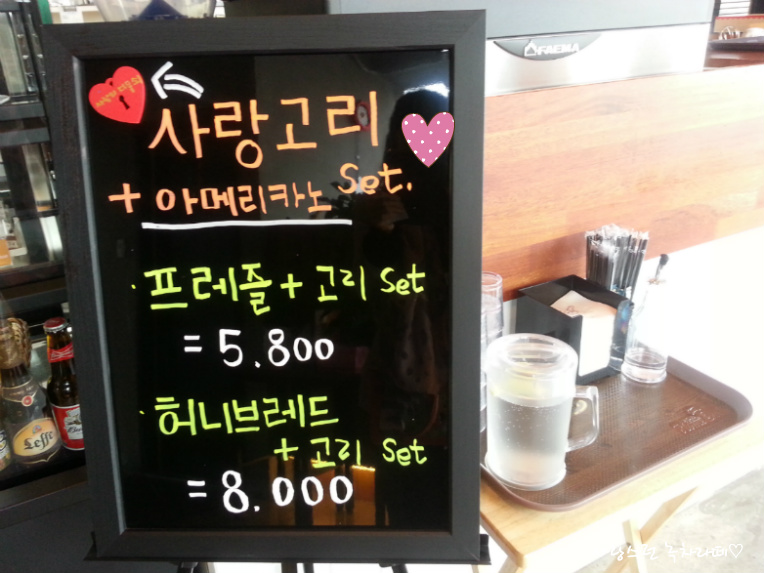 사랑고리
+ 아메리카노 Set.
· 프레즐 + 고리 Set
= 5.800
· 허니브레드
+ 고리 Set
= 8.000
FAEMA
Leffe